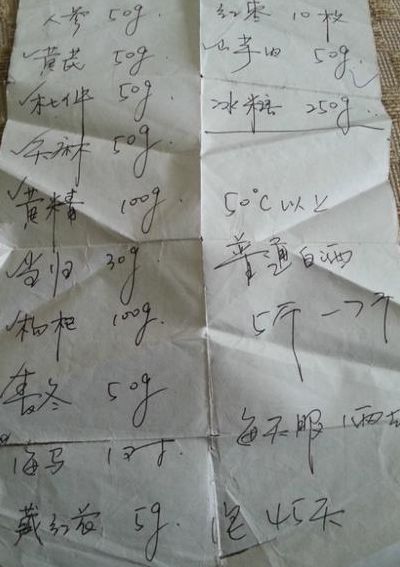 人参 50g.
黄芪 50g.
杜仲 50g.
天麻 50g.
黄精 100g.
当归 30g
枸杞 100g.
麦冬 50g
海马 1对
藏红花 5g.
红枣 10枚
50g.
冰糖 250g.
50°C以上
普通白酒
5斤一7斤
每天服1两
泡45天